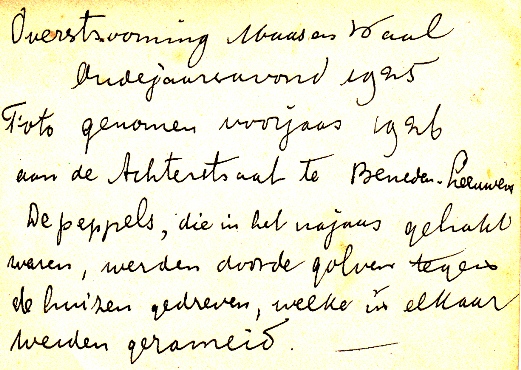 Overstrooming Maas en Waal
Oudejaarsavond 1925
Foto genomen voorjaar 1926
aan de Achterstraat te Beneden-Leeuwen
De peppels, die in het najaar gehakt
waren, werden door de golven tegen
de huizen gedreven, welke in elkaar
werden gerameid.